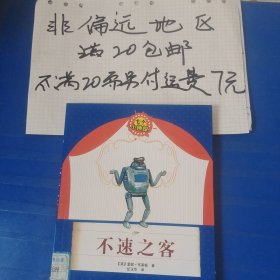 非偏远地区
满20包邮
不满20需另付运费7元
不速之客